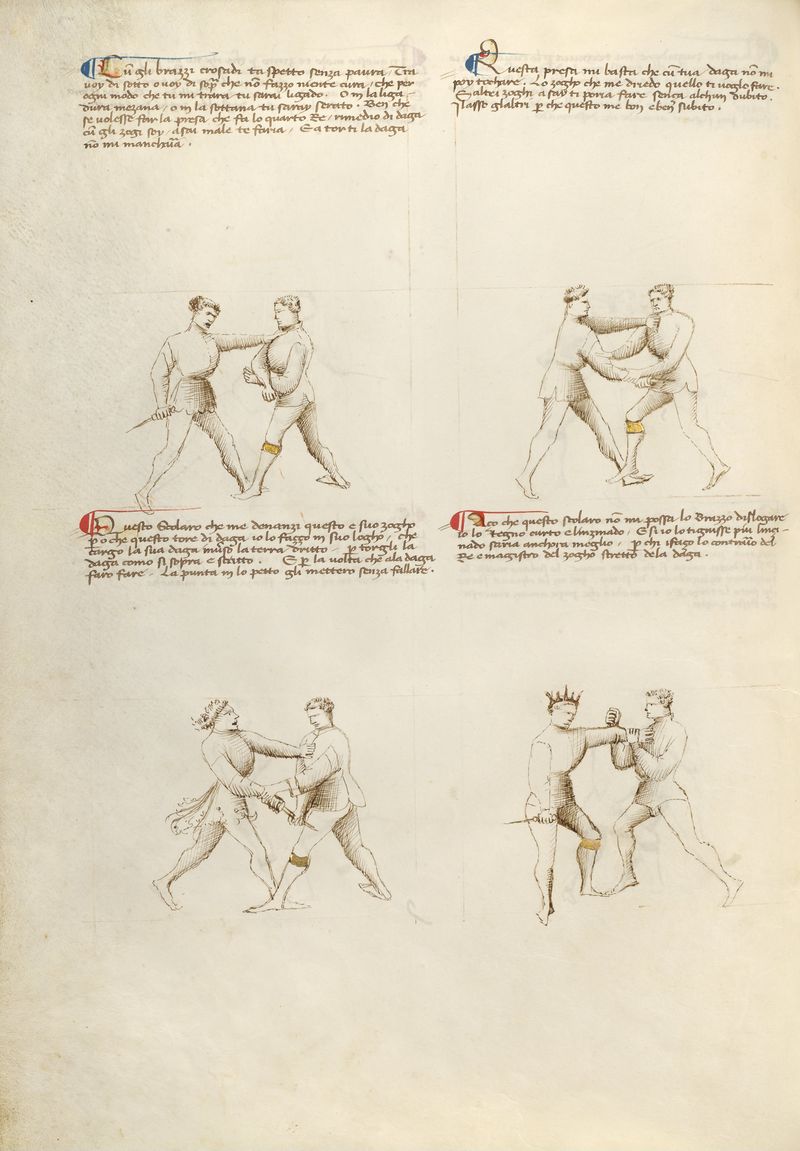 Cū gli brazzi crosadi ta spetto senza paura / Tra
voy di sotto o voy di sopᵃ che nō fazzo niente cura / che per
ogni modo che tu mi trara tu sarai ligado. O in la liga-
dura mezana / o in la sottana tu saray serato. Ben che
se volesse far la presa che fa lo quarto Re / rimedio di daga
cū gli zogi soy / asai male te faria / E a tor ti la daga
nō mi mancha .
Questa presa mi basta che cū tua daga nō mi
poy tochare. Lo zogho che me driedo quello ti voglo fare.
E altri zoghi asay ti poria fare senza alchun dubito.
I lasso gl altri p che questo me bon e ben subito.
Questo Scolaro che me denanzi questo e suo zogho
p o che questo tore di daga io lo fazzo in suo logho / che
cargo la sua daga inverso la terra drutto p torgli la
daga como si sopra e scritto. E p la volta che ala daga
faro fare La punta in lo petto gli mettero senza fallare.
Aço che questo scolaro nō mi possa lo Brazzo dislogare
io lo tegno curto e linzinado / E si io lo tignisse più linci-
nado saria anchora meglio / p chi i fago lo contraio del
Re e magistro del zogho stretto dela daga .